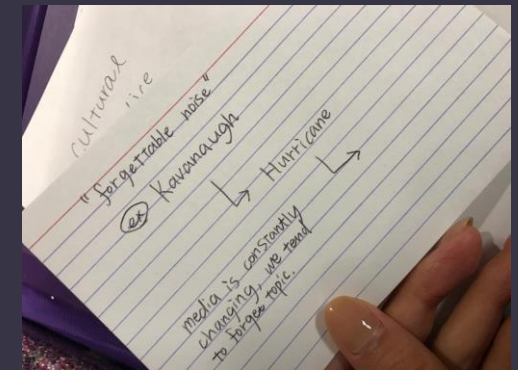 cultural
"forgettable noise"
ex Kavanaugh
↳ Hurricane
↳
media is constantly
changing, we tend
to forget topic.